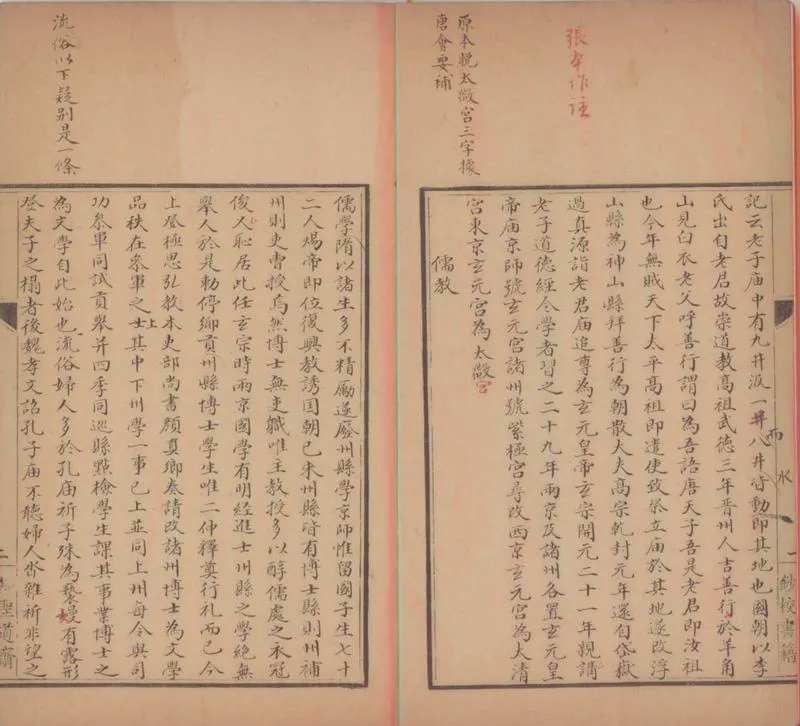 張本作註
原本脫太微宮三字據
唐會要補
記云老子廟中有九井汲一井八井皆動即其地也國朝以李
氏出自老君故崇道教高祖武德三年晉州人吉善行於羊角
山見白衣老父呼善行謂曰為吾語唐天子吾是老君即汝祖
也今年無賊天下太平高祖即遣使致祭立廟於其地遂改浮
山縣為神山縣拜善行為朝散大夫高宗乾封元年還自岱嶽
過真源詣老君廟追尊為玄元皇帝玄宗開元二十一年親謂
老子道德經令學者習之二十九年兩京及諸州各置玄元皇
帝廟京師號玄元宮諸州號紫極宮尋改西京玄元宮為太清
宮東京玄元宮為太微宮
儒教
雨
水
一
鈔校書籍
流俗以下疑别是一條
儒學隋以諸生多不精勵遂廢州縣學京師惟留國子生七十
二人煬帝即位復興教誘囯朝已來州縣皆有博士縣則州補
州則吏曹授焉然博士無吏職唯主教授多以醇儒處之衣冠
俊人恥居此任玄宗時兩京國學有明經進士州縣之學絶無
舉人於是勅停鄉貢州縣博士學生唯二仲釋奠行礼而已今
上登極思弘教本吏部尚書顔真卿奏請改諸州博士為文學
品秩在參軍之上其中下州學一事已上並同上州每令與司
功參軍同試貢舉并四季同巡縣㸃檢學生課其事業博士之
為文學自此始也流俗婦人多於孔廟祈子殊為褻嫚有露形
登夫子之榻者後魏孝文詔孔子廟不聽婦人合雜祈非望之
二
聖道齋